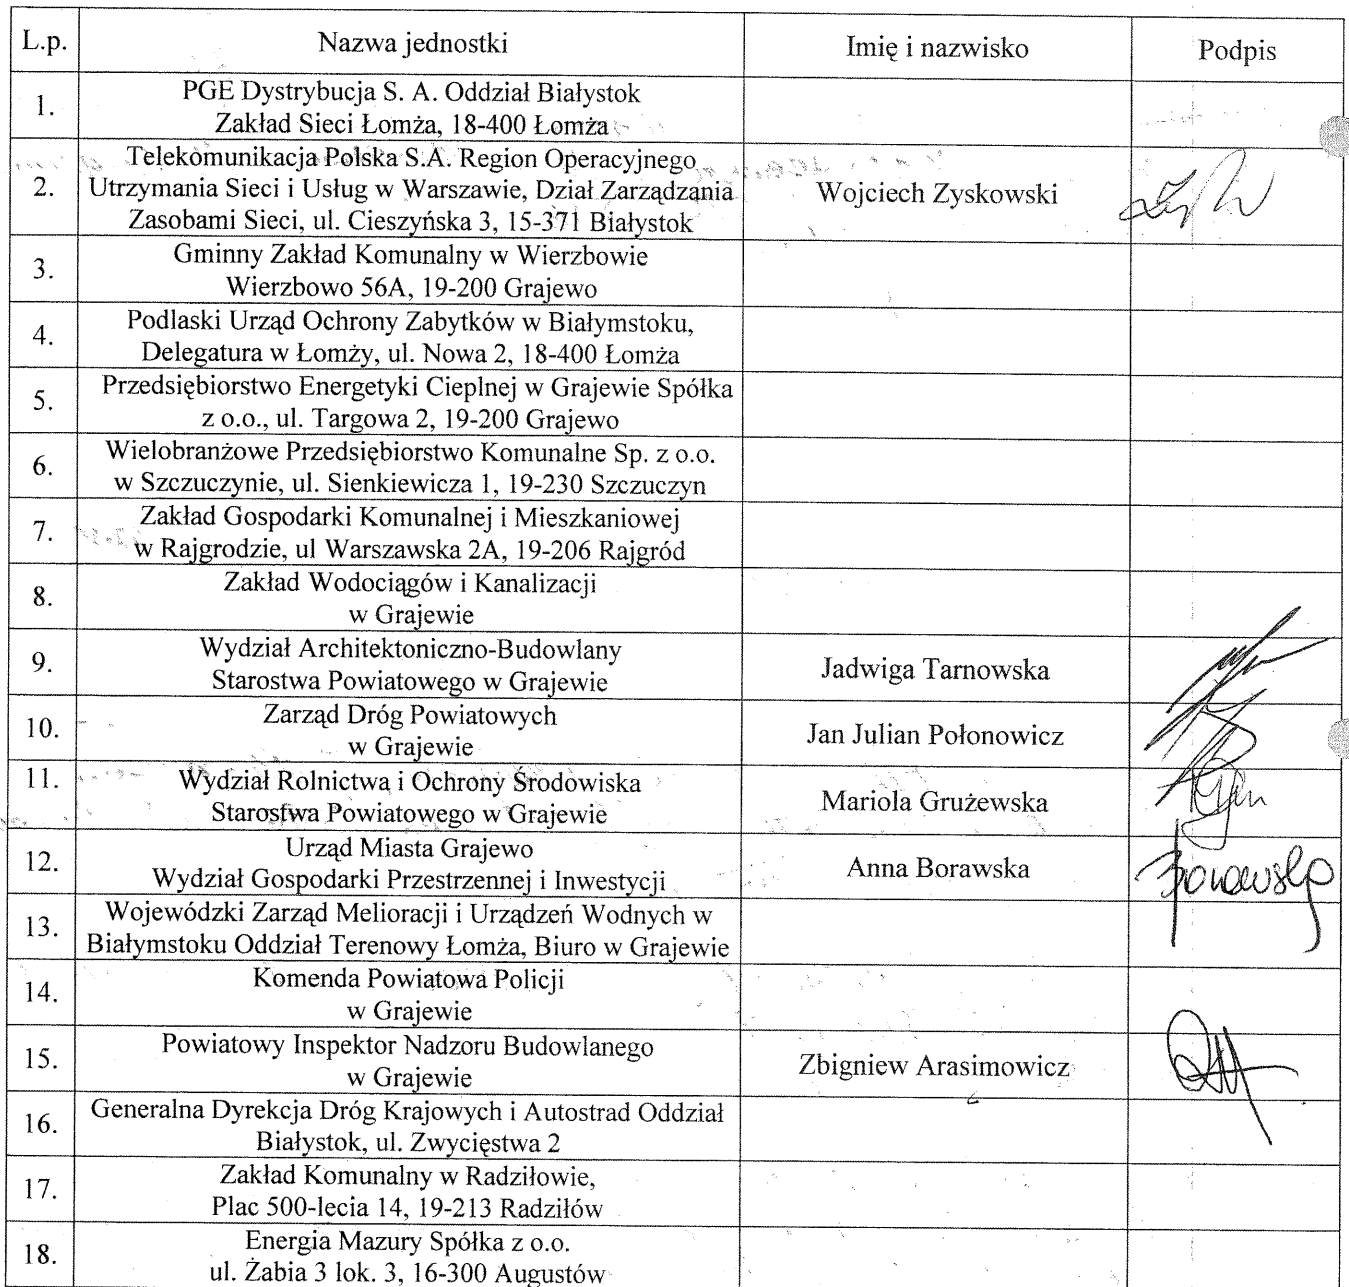 L.p. Nazwa jednostki Imię i nazwisko Podpis
1. PGE Dystrybucja S. A. Oddział Białystok
Zakład Sieci Łomża, 18-400 Łomża
2. Telekomunikacja Polska S.A. Region Operacyjnego
Utrzymania Sieci i Usług w Warszawie, Dział Zarządzania
Zasobami Sieci, ul. Cieszyńska 3, 15-371 Białystok
Wojciech Zyskowski
3. Gminny Zakład Komunalny w Wierzbowie
Wierzbowo 56A, 19-200 Grajewo
4. Podlaski Urząd Ochrony Zabytków w Białymstoku,
Delegatura w Łomży, ul. Nowa 2, 18-400 Łomża
5. Przedsiębiorstwo Energetyki Cieplnej w Grajewie Spółka
z o.o., ul. Targowa 2, 19-200 Grajewo
6. Wielobranżowe Przedsiębiorstwo Komunalne Sp. z o.o.
w Szczuczynie, ul. Sienkiewicza 1, 19-230 Szczuczyn
7. Zakład Gospodarki Komunalnej i Mieszkaniowej
w Rajgrodzie, ul Warszawska 2A, 19-206 Rajgród
8. Zakład Wodociągów i Kanalizacji
w Grajewie
9. Wydział Architektoniczno-Budowlany
Starostwa Powiatowego w Grajewie
Jadwiga Tarnowska
10. Zarząd Dróg Powiatowych
w Grajewie
Jan Julian Połonowicz
11. Wydział Rolnictwa i Ochrony Środowiska
Starostwa Powiatowego w Grajewie
Mariola Grużewska
12. Urząd Miasta Grajewo
Wydział Gospodarki Przestrzennej i Inwestycji
Anna Borawska
Borawska
13. Wojewódzki Zarząd Melioracji i Urządzeń Wodnych w
Białymstoku Oddział Terenowy Łomża, Biuro w Grajewie
14. Komenda Powiatowa Policji
w Grajewie
15. Powiatowy Inspektor Nadzoru Budowlanego
w Grajewie
Zbigniew Arasimowicz
16. Generalna Dyrekcja Dróg Krajowych i Autostrad Oddział
Białystok, ul. Zwycięstwa 2
17. Zakład Komunalny w Radziłowie,
Plac 500-lecia 14, 19-213 Radziłów
18. Energia Mazury Spółka z o.o.
ul. Żabia 3 lok. 3, 16-300 Augustów